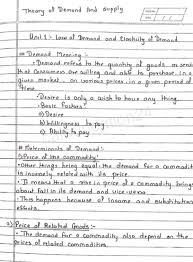 Theory of Demand And Supply
Unit 1:- Law of Demand and Elasticity of Demand
# Demand Meaning:-
Demand refers to the quantity of goods
that consumers are willing and able to purchase in a
given market on various prices in a given period of
time.
Desire is only a wish to have any thing.
- Basic factors
a) Desire
b) Willingness to pay
c) Ability to pay
# Determinants of Demand:-
1) Price of the commodity:-
Other things being equal the demand for a commodity
is inversely related with its price.
It means that a rise in price of a commodity brings
about fall in its demand and vice versa
This happens because of income and substitution
effects.
2) Price of Related Goods:-
The demand for a commodity also depend on the
prices of related commodities.